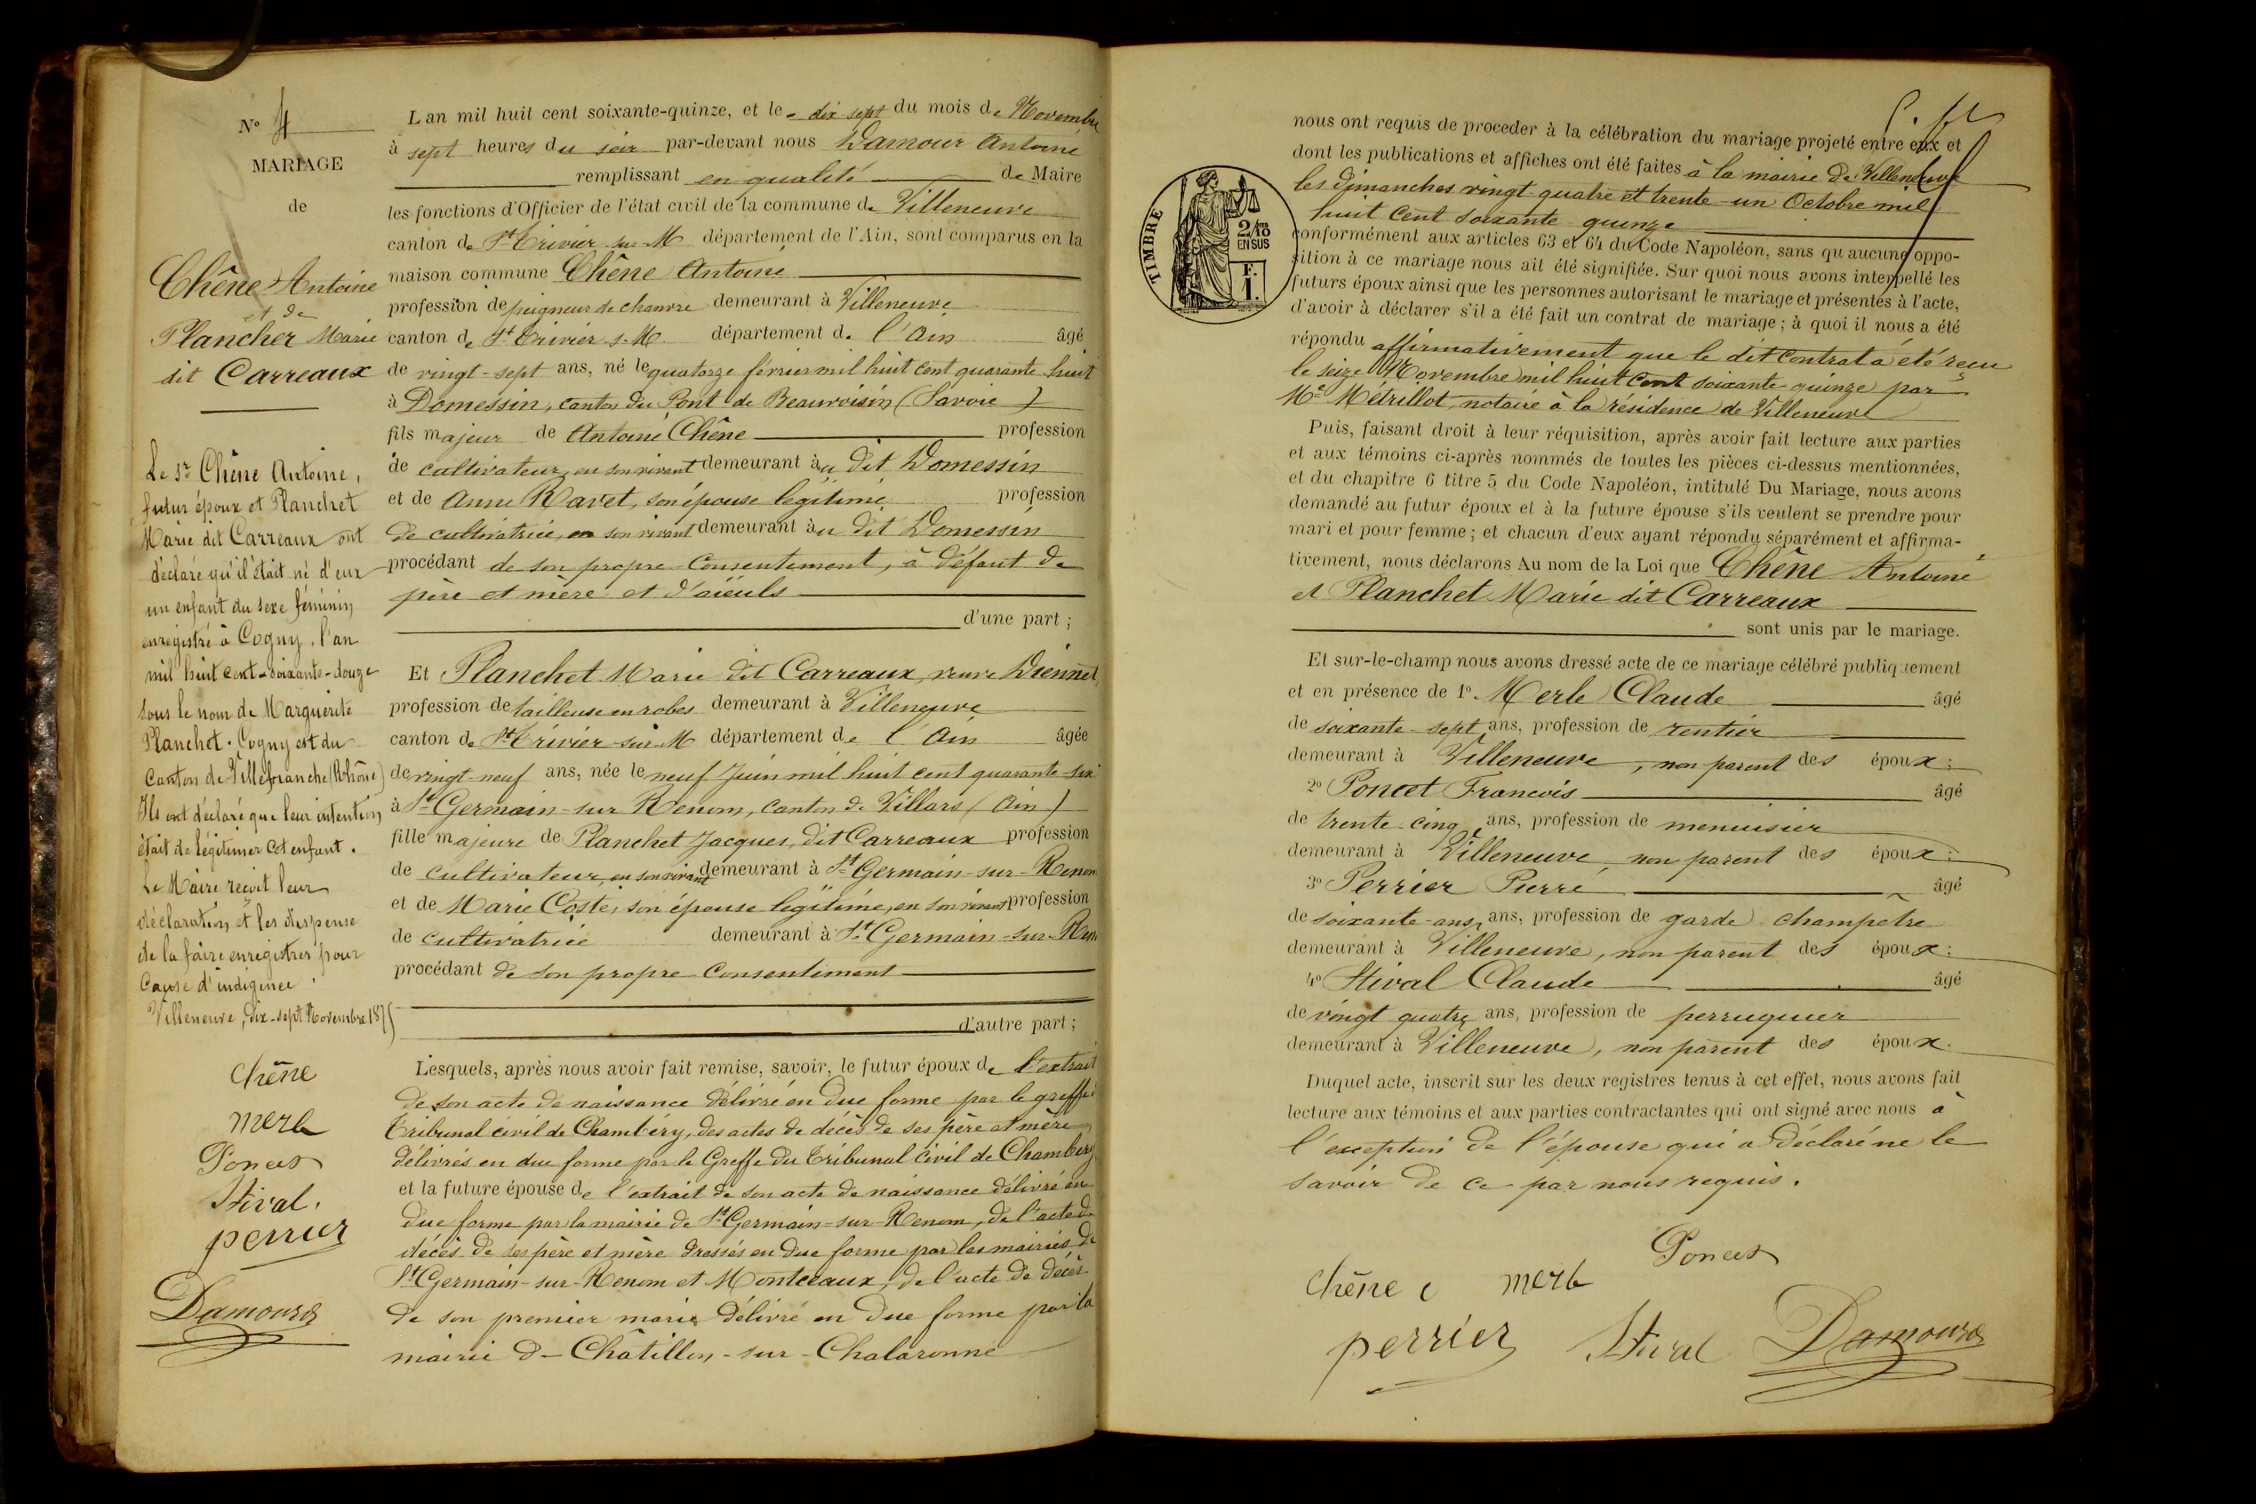 N° 4
MARIAGE
de
Chêne Antoine
et de
Plancher Marie
dit Carreaux
Le Sr Chêne Antoine,
futur époux et Planchet
Marie dit Carreaux ont
déclaré qu'il était né d'eux
un enfant du sexe féminin
enregistré à Cogny, l'an
mil huit cent-soixante-douze
sous le nom de Marguerite
Planchet. Cogny est du
Canton de Villefranche (Rhône)
Ils ont déclaré que leur intention
était de légitimer cet enfant.
Le Maire reçoit leur
déclaration et les dispense
de la faire enregistrer pour
cause d'indigence
Villeneuve, dix-sept Novembre 1875
Chêne
merle
Poncet
Stival.
perrier
Damour
L an mil huit cent soixante-quinze, et le dix sept du mois de Novembre
à sept heures du soir par-devant nous Damour Antoine
remplissant en qualité de Maire
les fonctions d'Officier de l'état civil de la commune de Villeneuve
canton de St Trivier sur M département de l'Ain, sont comparus en la
maison commune Chêne Antoine
profession de peigneur de chanvre demeurant à Villeneuve
canton de St Trivier s. M département de l'Ain âgé
de vingt-sept ans, né le quatorze février mil huit cent quarante huit
à Domessin, canton du Pont de Beauvoisin (Savoie)
fils majeur de Antoine Chêne profession
de cultivateur, en son vivant demeurant à u dit Domessin
et de Anne Ravet, son épouse légitime profession
de cultivatrice, en son vivant demeurant à u dit Domessin
procédant de son propre consentement, à défaut de
père et mère et d'aïeuls
d'une part ;
Et Planchet Marie dit Carreaux, veuve Viennet,
profession de tailleuse en robes demeurant à Villeneuve
canton de St Trivier sur M département de l'Ain âgée
de vingt-neuf ans, née le neuf Juin mil huit cent quarante-six
à St Germain-sur Renom, canton de Villars (Ain)
fille majeure de Planchet Jacques, dit Carreaux profession
de cultivateur, en son vivant demeurant à St Germain-sur-Renom
et de Marie Coste, son épouse légitime, en son vivant profession
de cultivatrice demeurant à St Germain-sur-Renom
procédant de son propre consentement
d'autre part ;
Lesquels, après nous avoir fait remise, savoir, le futur époux de l'extrait
de son acte de naissance délivré en due forme par le greffe
Tribunal civil de Chambéry, des actes de décès de ses père et mère
délivrés en due forme par le Greffe du Tribunal Civil de Chambéry
et la future épouse de l'extrait de son acte de naissance délivré en
due forme par la mairie de St Germain-sur-Renom, de l'acte de
décès de ses père et mère dressés en due forme par les mairies de
St Germain-sur-Renom et Montceaux, de l'acte de décès
de son premier mari, délivré en due forme par la
mairie de Châtillon-sur-Chalaronne
TIMBRE
2/10
EN SUS
F.
1.
nous ont requis de proceder à la célébration du mariage projeté entre eux et
dont les publications et affiches ont été faites à la mairie de Villeneuve
les dimanches vingt-quatre et trente-un Octobre mil
huit cent soixante quinze
conformément aux articles 63 et 64 du Code Napoléon, sans qu aucune oppo-
sition à ce mariage nous ait été signifiée. Sur quoi nous avons interpellé les
futurs époux ainsi que les personnes autorisant le mariage et présentes à l'acte,
d'avoir à déclarer s'il a été fait un contrat de mariage ; à quoi il nous a été
répondu affirmativement que le dit contrat a été reçu
le seize Novembre mil huit cent soixante-quinze par
Me Métrillot, notaire à la résidence de Villeneuve
Puis, faisant droit à leur réquisition, après avoir fait lecture aux parties
et aux témoins ci-après nommés de toutes les pièces ci-dessus mentionnées,
et du chapitre 6 titre 5 du Code Napoléon, intitulé Du Mariage, nous avons
demandé au futur époux et à la future épouse s'ils veulent se prendre pour
mari et pour femme ; et chacun d'eux ayant répondu séparément et affirma-
tivement, nous déclarons Au nom de la Loi que Chêne Antoine
et Planchet Marie dit Carreaux
sont unis par le mariage.
Et sur-le-champ nous avons dressé acte de ce mariage célébré publiquement
et en présence de 1° Merle Claude âgé
de soixante-sept ans, profession de rentier
demeurant à Villeneuve, non parent des époux ;
2° Poncet François âgé
de trente-cinq ans, profession de menuisier
demeurant à Villeneuve non parent des époux ;
3° Perrier Pierre âgé
de soixante-ans, ans, profession de garde champêtre
demeurant à Villeneuve, non parent des époux ;
4° Stival Claude âgé
de vingt quatre ans, profession de perruquier
demeurant à Villeneuve, non parent des époux.
Duquel acte, inscrit sur les deux registres tenus à cet effet, nous avons fait
lecture aux témoins et aux parties contractantes qui ont signé avec nous à
l'exception de l'épouse qui a déclaré ne le
savoir de ce par nous requis.
Poncet
Chêne merle
perrier Stival Damour